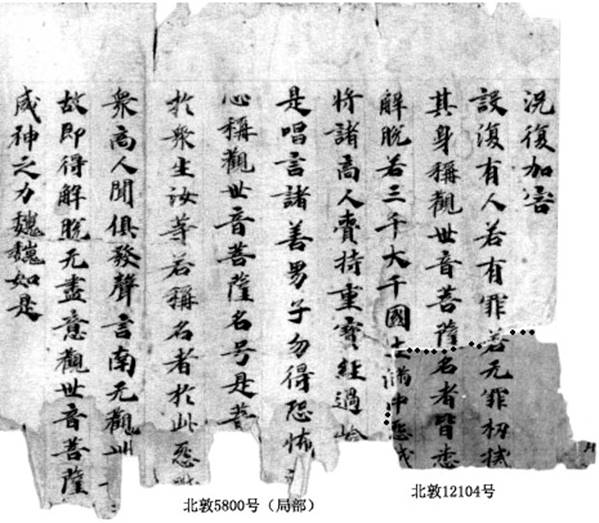 況復加害
設復有人若有罪若无罪杻械
其身稱觀世音菩薩名者皆悉
解脫若三千大千國土滿中怨賊
將諸商人賷持重寶經過嶮
是唱言諸善男子勿得恐怖
心稱觀世音菩薩名号是菩
於衆生汝等若稱名者於此怨
衆商人聞俱發聲言南无觀世
故即得解脫无盡意觀世音菩薩
威神之力巍巍如是
北敦5800号（局部）
北敦12104号